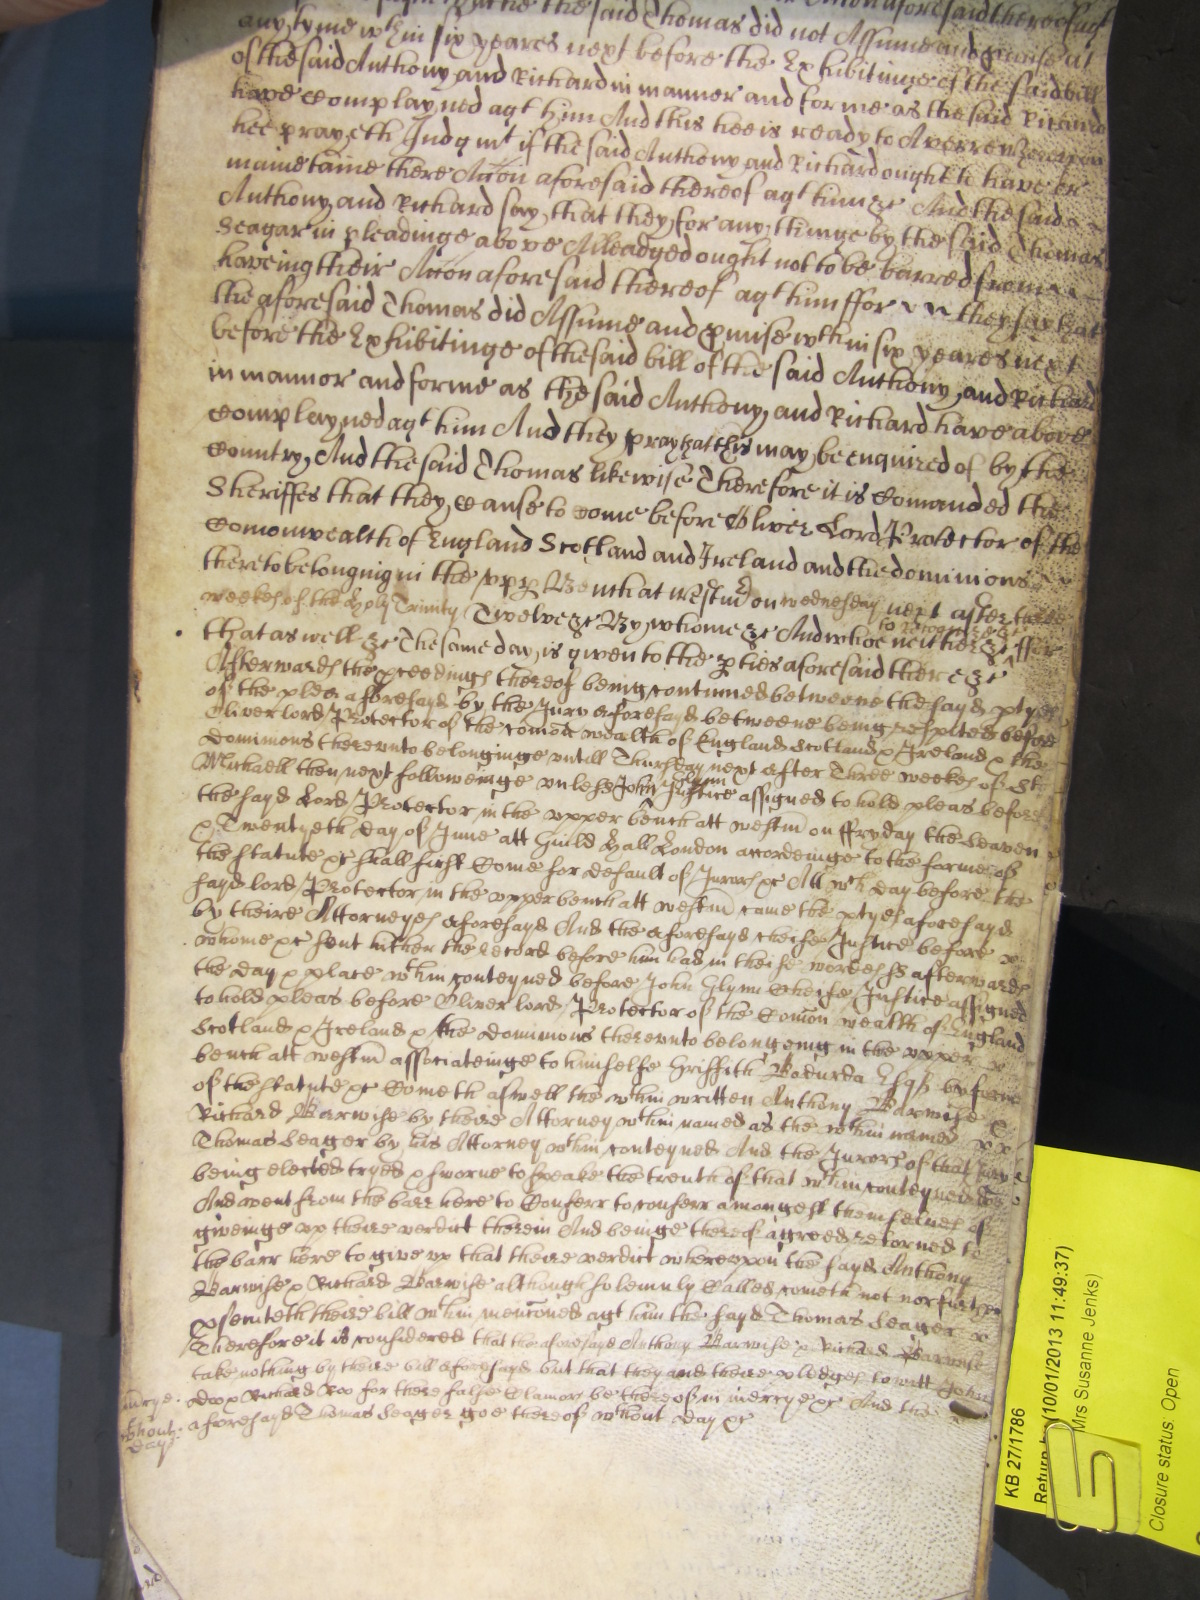 the said Thomas did not Assume and pmise at
any tyme wthin six yeares next before the Exhibitinge of the said bill
of the said Anthony and Richard in manner and forme as the said Richard
have Complayned agt him And this hee is ready to Averre Whereupon
hee prayeth Judgmt if the said Anthony and Richard ought to have or
mainetaine there Accon aforesaid thereof agt him &c And the said
Anthony and Richard say that they for any thinge by the said Thomas
Seagar in pleadinge above Alleadged ought not to be barred from
haveing their Accon aforesaid thereof agt him ffor they say that
the aforesaid Thomas did Assume and pmise wthin six yeares next
before the Exhibitinge of the said bill of the said Anthony and Richard
in mannor and forme as the said Anthony and Richard have above
Complayned agt him And they pray that this may be enquired of by the
Country And the said Thomas likewise Therefore it is Comanded the
Sheriffes that they cause to come before Oliver Lord Protector of the
Comonwealth of England Scotland and Ireland and the dominions
thereto belonging in the upp Bench at Westm on wednesday next after three
weekes of the holy Trinity Twelve &c By whome &c And whoe neither &c ffor
to recognize &c
that as well &c The same day is given to the pties aforesaid there &c
Afterwards the pceedings thereof being continued betweene the sayd ptyes
of the plea aforesayd by the Jury aforesayd betweene being respited before
Oliver lord Protector of the Comon wealth of England Scotland & Ireland & the
dominions thereunto belonginge untill Thursday next after Three weekes of St
Michaell then next followeinge unless John Glynn Justice assigned to hold pleas before
the sayd Lord Protector in the upper bench att westm on ffryday the Seaven
& Twentyeth day of June att Guild Hall London accordeinge to the forme of
the statute &c shall first Come for default of Jurors &c Att wch day before the
sayd lord Protector in the upper bench att westm came the ptyes aforesayd
by theire Attorneyes aforesayd And the aforesayd cheife Justice before
whome &c sent hither the record before him had in theise wordes ss afterwards
the day & place wthin conteyned before John Glynn Cheife Justice assigned
to hold pleas before Oliver lord Protector of the Comon wealth of England
Scotland & Ireland & the dominions thereunto belongeing in the upper
bench att westm associateinge to himselfe Griffith Bodurda Esqr by forme
of the statute &c Cometh aswell the wthin written Anthony Barwise &
Richard Barwise by theire Attorney wthin named as the wthin named
Thomas Seager by his Attorney wthin conteyned And the Jurors of that Jury
being elected tryed & sworne to speake the trueth of that wthin conteyned
And went from the barr here to Conferr to conferr amongest themselves of
giveinge up theire verdict therein And beinge thereof agreed retorned to
the barr here to give up that theire verdict whereupon the sayd Anthony
Barwise & Richard Barwise although solemnly Called cometh not nor further
psecuteth theire bill wthin menconed agt him the sayd Thomas Seager
Therefore it is considered that the aforesayd Anthony Barwise & Richard Barwise
take nothing by theire bill aforesayd but that they and theire pledges to witt John
Doo & Richard Roo for there false Clamor be thereof in mercye &c And the
aforesayd Thomas Seager goe thereof wthout day &c
mercye
wthout
day
KB 27/1786
Return by (10/01/2013 11:49:37)
Mrs Susanne Jenks)
Closure status: Open